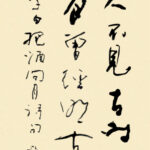 人不見古时
月曾經照古
李白把酒问月诗句